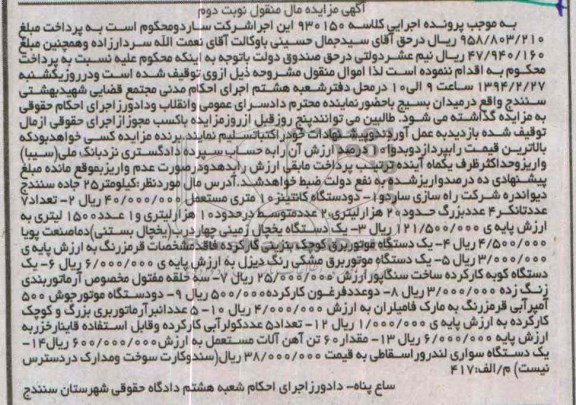 آگهی مزایده مال منقول نوبت دوم
به موجب پرونده اجرایی کلاسه ۹۳۰۱۵۰ این اجراشرکت ساردومحکوم است به پرداخت مبلغ
۹۵۸/۸۰۳/۲۱۰ ریال درحق آقای سیدجمال حسینی باوکالت آقای نعمت الله سردارزاده وهمچنین مبلغ
۴۷/۹۴۰/۱۶۰ ریال نیم عشردولتی درحق صندوق دولت باتوجه به اینکه محکوم علیه نسبت به پرداخت
محکوم به اقدام ننموده است لذا اموال منقول مشروحه ذیل ازوی توقیف شده است ودرروزیکشنبه
۱۳۹۴/۲/۲۷ ساعت ۹ الی۱۰ درمحل دفترشعبه هشتم اجرای احکام مدنی مجتمع قضایی شهیدبهشتی
سنندج واقع درمیدان بسیج باحضورنماینده محترم دادسرای عمومی وانقلاب ودادورزاجرای احکام حقوقی
به مزایده گذاشته می شود. طالبین می توانندپنج روزقبل ازروزمزایده باکسب مجوزازاجرای حقوقی ازمال
توقیف شده بازدیدبه عمل آورندوپیشنهادات خودراکتباتسلیم نمایند.برنده مزایده کسی خواهدبودکه
بالاترین قیمت رابپردازدوبدوا۱۰ درصد ارزش آن رابه حساب سپرده دادگستری نزدبانک ملی(سیبا)
واریزوحداکثرظرف یکماه آینده ترتیب پرداخت مابقی ارزش رابدهدودرصورت عدم واریزبموقع مانده مبلغ
پیشنهادی ده درصدواریزشده به نفع دولت ضبط خواهدشد. آدرس مال موردنظر:کیلومتر۲۵ جاده سنندج
دیواندره شرکت راه سازی ساردو۱- دودستگاه کانتینر۱۰ متری مستعمل ۴۰/۰۰۰/۰۰۰ ریال ۲- تعداد۷
عددتانکر۴ عددبزرگ حدود۲۰ هزارلیتری،۲ عددمتوسط درحدود۱۰ هزارلیتری و۱ عدد۱۵۰۰ لیتری به
ارزش پایه ی ۱۲۱/۵۰۰/۰۰۰ ریال ۳- یک دستگاه یخچال زمینی چهاردرب(یخچال بستنی)دماصنعت پویا
۴/۵۰۰/۰۰۰ ریال ۴- یک دستگاه موتوربرق کوچک بنزینی کارکرده فاقدمشخصات قرمزرنگ به ارزش پایه ی
۳/۰۰۰/۰۰۰ ریال ۵- یک دستگاه موتوربرق مشکی رنگ دیزل به ارزش پایه ی ۶/۰۰۰/۰۰۰ ریال ۶- یک
دستگاه کوبه کارکرده ساخت سنگاپورارزش ۲۵/۰۰۰/۰۰۰ ریال ۷- سه حلقه مفتول مخصوص آرماتوربندی
زنگ زده ۳/۰۰۰/۰۰۰ ریال ۸- دوعددفرغون کارکرده۵۰۰/۰۰۰ ریال ۹- دودستگاه موتورجوش ۵۰۰
آمپرآبی قرمزرنگ به مارک فامیلران به ارزش ۴/۰۰۰/۰۰۰ ریال ۱۰- ۵ عددانبرآرماتوربری بزرگ و کوچک
کارکرده به ارزش پایه ی ۱/۰۰۰/۰۰۰ ریال ۱۲- تعداد۵ عددکولرآبی کارکرده وقابل استفاده قایناخرزربه
ارزش پایه ۶/۰۰۰/۰۰۰ ریال ۱۳- مقدار۶۰ تن آهن آلات مستعمل به ارزش۶۰۰/۰۰۰/۰۰۰ ریال۱۴-
یک دستگاه سواری لندروراسقاطی به قیمت ۳۸/۰۰۰/۰۰۰ ریال(سندوکارت سوخت ومدارک دردسترس
نیست) م/الف:۴۱۷
ساع پناه- دادورزاجرای احکام شعبه هشتم دادگاه حقوقی شهرستان سنندج